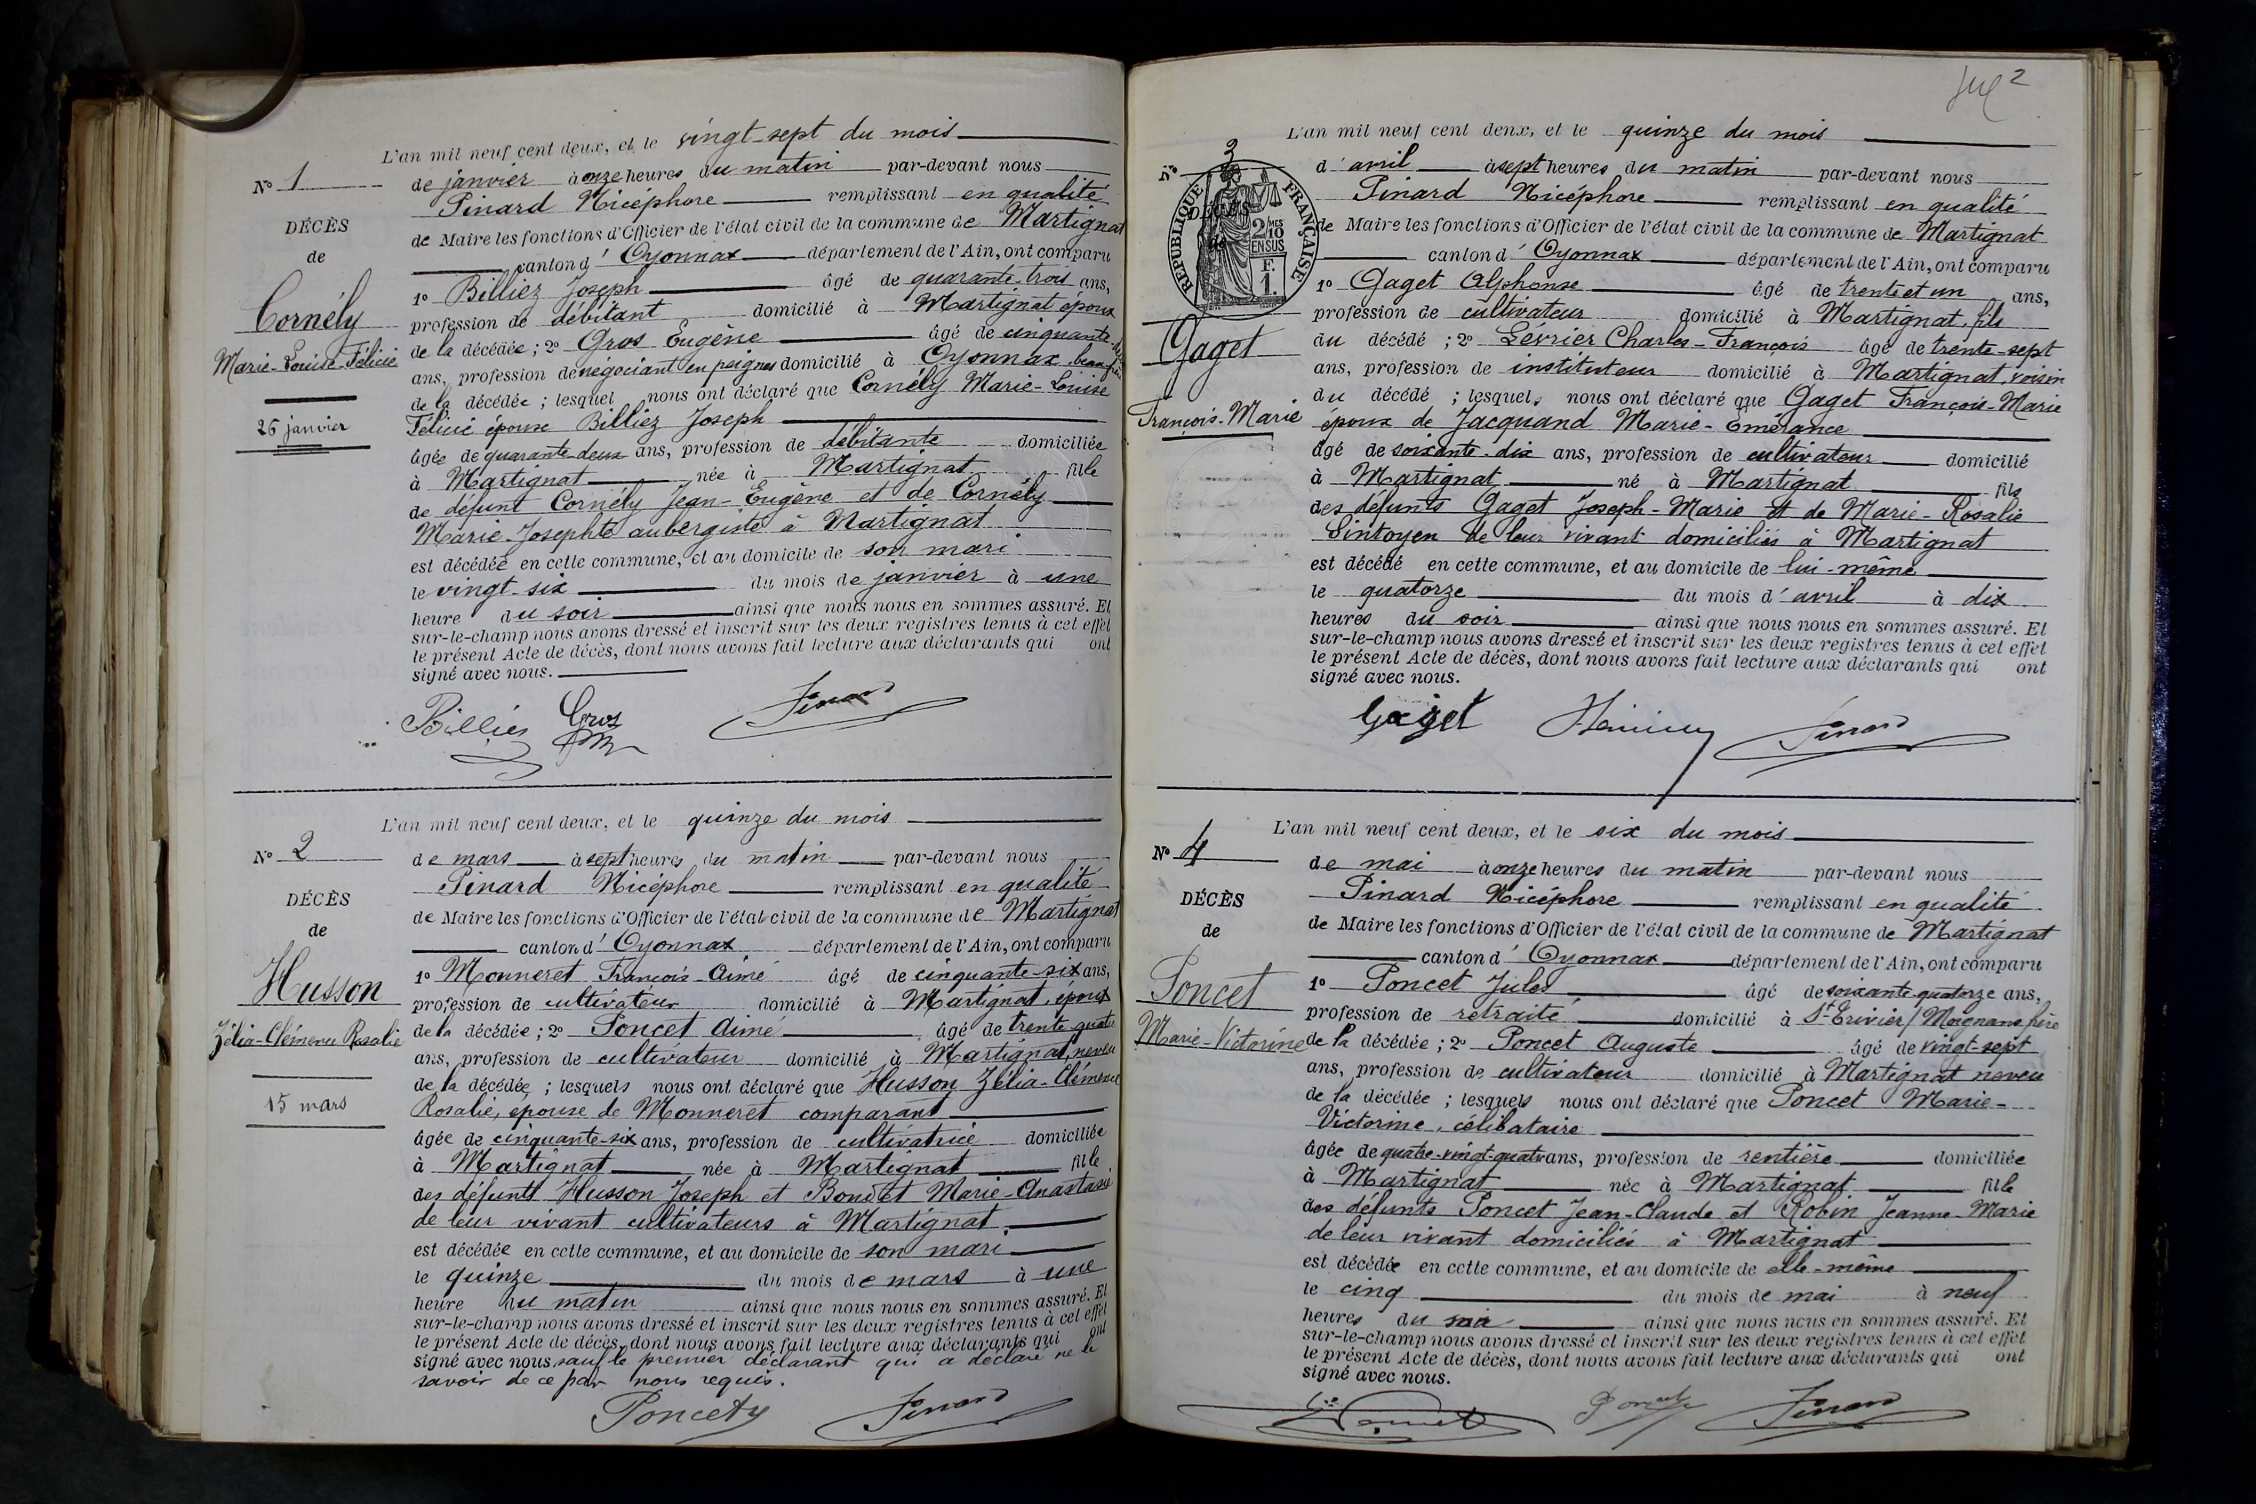 L'an mil neuf cent deux, et le vingt-sept du mois
N° 1
de janvier à onze heures du matin par-devant nous
Pinard Nicéphore remplissant en qualité
DÉCÈS
de Maire les fonctions d'Officier de l'état civil de la commune de Martignat
de
canton d'Oyonnax département de l'Ain, ont comparu
1° Billiez Joseph âgé de quarante-trois ans,
Cornély
profession de débitant domicilié à Martignat époux
Marie-Louise-Félicie
de la décédée ; 2° Gros Eugène âgé de cinquante-
ans, profession de négociant en peignes domicilié à Oyonnax, beau-frère
de la décédée ; lesquel nous ont déclaré que Cornély Marie-Louise
26 janvier
Félicie épouse Billiez Joseph
âgée de quarante-deux ans, profession de débitante domiciliée
à Martignat née à Martignat fille
de défunt Cornély Jean-Eugène et de Cornély
Marie-Josephte aubergiste à Martignat
est décédée en cette commune, et au domicile de son mari
le vingt-six du mois de janvier à une
heure du soir ainsi que nous nous en sommes assuré. Et
sur-le-champ nous avons dressé et inscrit sur les deux registres tenus à cet effet
le présent Acte de décès, dont nous avons fait lecture aux déclarants qui ont
signé avec nous.
Billiez Gros Pinard
L'an mil neuf cent deux, et le quinze du mois
N° 2
de mars à sept heures du matin par-devant nous
Pinard Nicéphore remplissant en qualité
DÉCÈS
de Maire les fonctions d'Officier de l'état civil de la commune de Martignat
de
canton d'Oyonnax département de l'Ain, ont comparu
1° Monneret François-Aimé âgé de cinquante-six ans,
Husson
profession de cultivateur domicilié à Martignat, époux
Zélia-Clémence Rosalie
de la décédée ; 2° Poncet Aimé âgé de trente-quatre
ans, profession de cultivateur domicilié à Martignat, neveu
de la décédée ; lesquels nous ont déclaré que Husson Zélia-Clémence
15 mars
Rosalie, épouse de Monneret comparant
âgée de cinquante-six ans, profession de cultivatrice domiciliée
à Martignat née à Martignat fille
des défunts Husson Joseph et Boudet Marie-Anastasie
de leur vivant cultivateurs à Martignat
est décédée en cette commune, et au domicile de son mari
le quinze du mois de mars à une
heure du matin ainsi que nous nous en sommes assuré. Et
sur-le-champ nous avons dressé et inscrit sur les deux registres tenus à cet effet
le présent Acte de décès, dont nous avons fait lecture aux déclarants qui ont
signé avec nous, sauf le premier déclarant qui a déclaré ne le
savoir de ce par nous requis.
Poncet Pinard
2
L'an mil neuf cent deux, et le quinze du mois
N° 3
d'avril à sept heures du matin par-devant nous
Pinard Nicéphore remplissant en qualité
RÉPUBLIQUE FRANÇAISE
2/10 MES EN SUS
F. 1.
DÉCÈS
de Maire les fonctions d'Officier de l'état civil de la commune de Martignat
de
canton d'Oyonnax département de l'Ain, ont comparu
1° Gaget Alphonse âgé de trente et un ans,
profession de cultivateur domicilié à Martignat, fils
Gaget
du décédé ; 2° Lévrier Charles-François âgé de trente-sept
ans, profession de instituteur domicilié à Martignat, voisin
du décédé ; lesquels nous ont déclaré que Gaget François-Marie
François-Marie
époux de Jacquand Marie-Emérance
âgé de soixante-dix ans, profession de cultivateur domicilié
à Martignat né à Martignat fils
des défunts Gaget Joseph-Marie et de Marie-Rosalie
Sintoyen de leur vivant domiciliés à Martignat
est décédé en cette commune, et au domicile de lui-même
le quatorze du mois d'avril à dix
heures du soir ainsi que nous nous en sommes assuré. Et
sur-le-champ nous avons dressé et inscrit sur les deux registres tenus à cet effet
le présent Acte de décès, dont nous avons fait lecture aux déclarants qui ont
signé avec nous.
Gaget Pinard
L'an mil neuf cent deux, et le six du mois
N° 4
de mai à onze heures du matin par-devant nous
Pinard Nicéphore remplissant en qualité
DÉCÈS
de Maire les fonctions d'Officier de l'état civil de la commune de Martignat
de
canton d'Oyonnax département de l'Ain, ont comparu
1° Poncet Jules âgé de soixante-quatorze ans,
Poncet
profession de retraité domicilié à St-Trivier s/ Moignans, frère
Marie-Victorine
de la décédée ; 2° Poncet Auguste âgé de vingt-sept
ans, profession de cultivateur domicilié à Martignat neveu
de la décédée ; lesquels nous ont déclaré que Poncet Marie-
Victorine, célibataire
âgée de quatre-vingt-quatre ans, profession de rentière domiciliée
à Martignat née à Martignat fille
des défunts Poncet Jean-Claude et Robin Jeanne-Marie
de leur vivant domiciliés à Martignat
est décédée en cette commune, et au domicile de elle-même
le cinq du mois de mai à neuf
heures du soir ainsi que nous nous en sommes assuré. Et
sur-le-champ nous avons dressé et inscrit sur les deux registres tenus à cet effet
le présent Acte de décès, dont nous avons fait lecture aux déclarants qui ont
signé avec nous.
Poncet Poncet Pinard